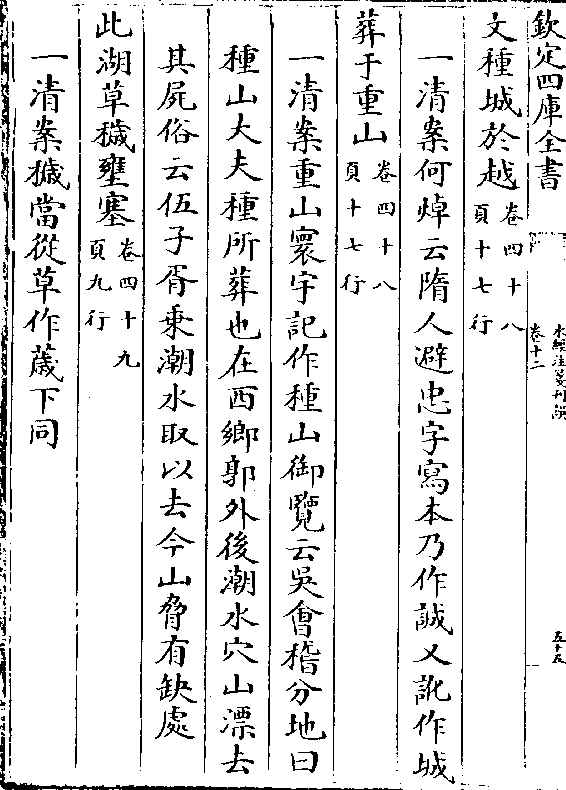 欽定四庫全書
水經注箋刊誤
卷十二
五十五
文種城於越卷四十八頁十七行
一清案何焯云隋人避忠字寫本乃作誠又訛作城
葬于重山卷四十八頁十七行
一清案重山寰宇記作種山御覽云吳會稽分地曰
種山大夫種所葬也在西鄉郭外後潮水穴山漂去
其屍俗云伍子胥乗潮水取以去今山脅有缺處
此湖草穢壅塞卷四十九頁九行
一清案穢當從草作薉下同